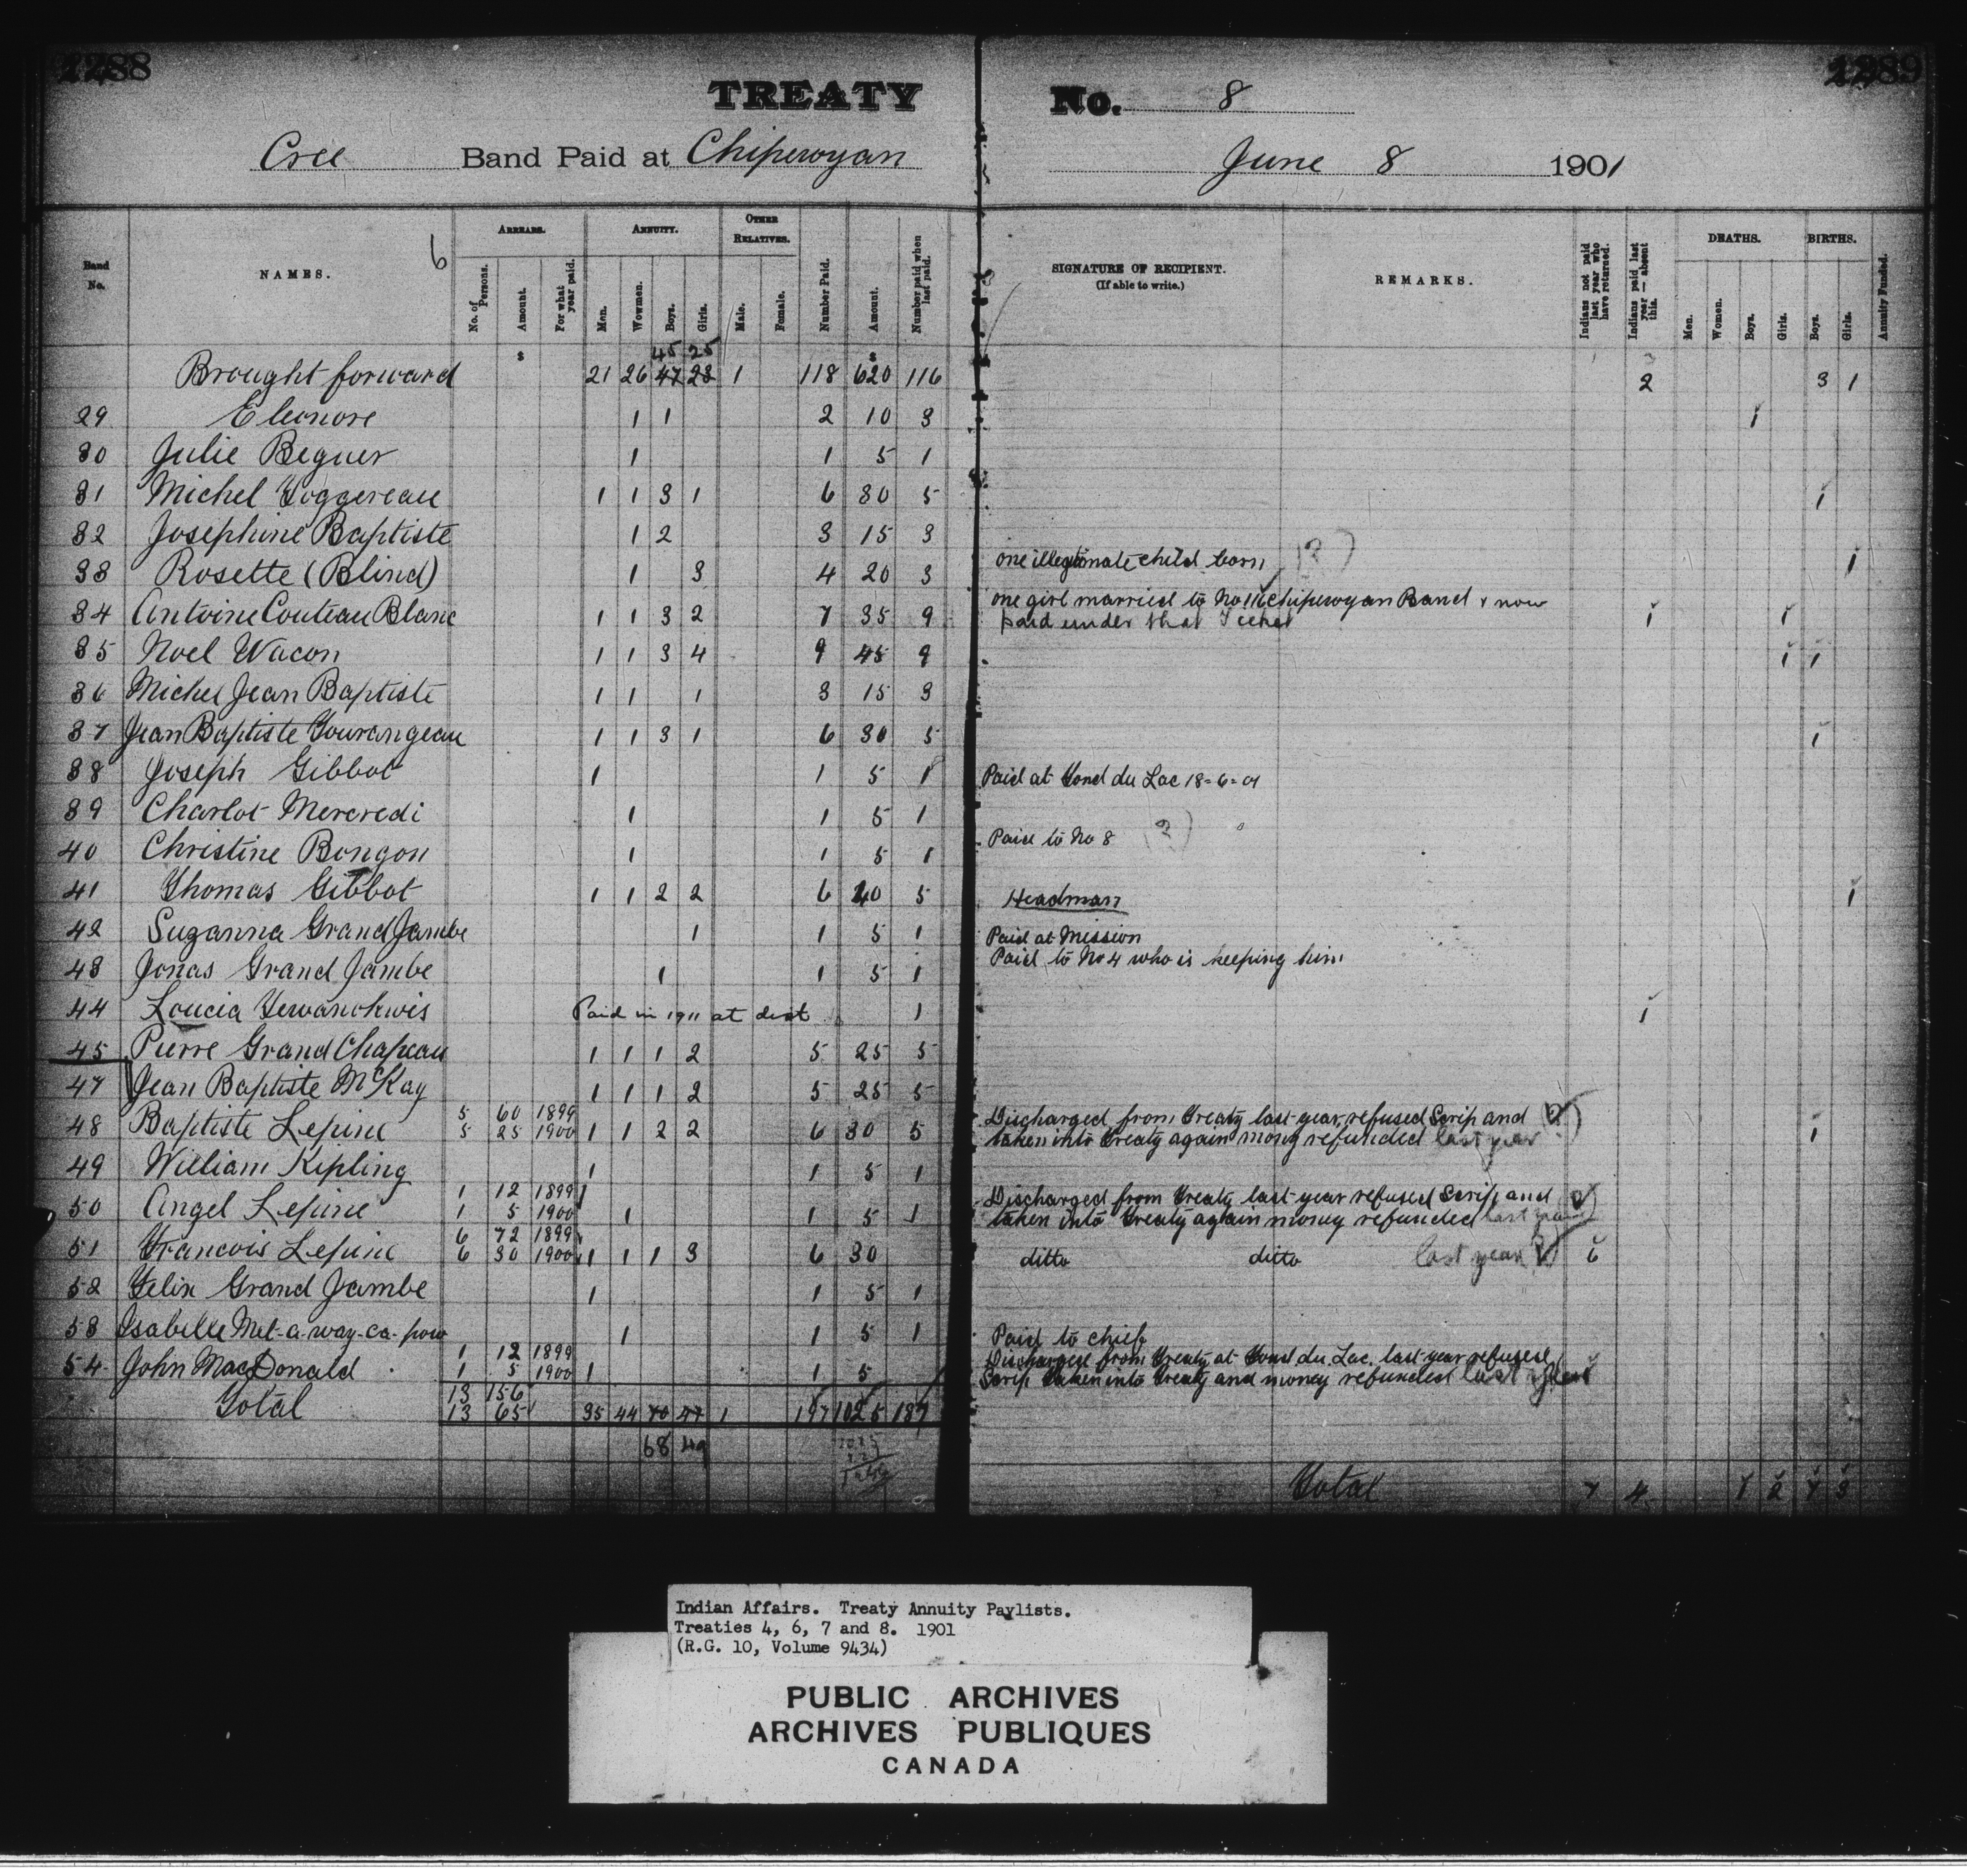 1288
1289
TREATY No. 8
Cree Band Paid at Chipewyan June 8 1901
Band No.
NAMES. 6
ARREARS.
No. of Persons.
Amount.
For what year paid.
ANNUITY.
Men.
Wowmen.
Boys.
Girls.
OTHER RELATIVES.
Male.
Female.
Number Paid.
Amount.
Number paid when last paid.
SIGNATURE OF RECIPIENT.
(If able to write.)
REMARKS.
Indians not paid last year who have returned.
Indians paid last year — absent this.
DEATHS.
Men.
Women.
Boys.
Girls.
BIRTHS.
Boys.
Girls.
Annuity Funded.
$ 45 25 $
Brought forward 21 26 47 28 1 118 620 116 2 3 1
29 Eleonore 1 1 2 10 3 1
30 Julie Beguer 1 1 5 1
31 Michel Toggereau 1 1 3 1 6 30 5 1
32 Josephine Baptiste 1 2 3 15 3
33 Rosette (Blind) 1 3 4 20 3 one illegitimate child born (?) 1
34 Antoine Couteau Blanc 1 1 3 2 7 35 9 one girl married to No 111 Chipewyan Band & now
paid under that Ticket 1 1
35 Noel Wacon 1 1 3 4 9 45 9 1 1
36 Michel Jean Baptiste 1 1 1 3 15 3
37 Jean Baptiste Tourangeau 1 1 3 1 6 30 5 1
38 Joseph Gibbot 1 1 5 1 Paid at Fond du Lac 18-6-01
39 Charlot Mercredi 1 1 5 1
40 Christine Bongon 1 1 5 1 Paid to No 8 (?)
41 Thomas Gibbot 1 1 2 2 6 40 5 Headman 1
42 Suzanna Grand Jambe 1 1 5 1 Paid at Mission
43 Jonas Grand Jambe 1 1 5 1 Paid to No 4 who is keeping him
44 Loucia Tewanokwis Paid in 1911 at dist 1 1
45 Pierre Grand Chapeau 1 1 1 2 5 25 5
47 Jean Baptiste McKay 1 1 1 2 5 25 5
5 60 1899 Discharged from Treaty last year, refused Scrip and (?)
48 Baptiste Lepine 5 25 1900 1 1 2 2 6 30 5 taken into Treaty again money refunded last year 1
49 William Kipling 1 1 5 1
1 12 1899 Discharged from Treaty last year refused Scrip and
50 Angel Lepine 1 5 1900 1 1 5 1 taken into Treaty again money refunded last year
6 72 1899
51 Francois Lepine 6 30 1900 1 1 1 3 6 30 ditto ditto last year 6
52 Felix Grand Jambe 1 1 5 1
53 Isabelle Met-a-way-ca-pow 1 1 5 1 Paid to chief
1 12 1899 Discharged from Treaty at Fond du Lac last year refused
54 John MacDonald 1 5 1900 1 1 5 Scrip taken into Treaty and money refunded last year
13 156
Total 13 65 35 44 70 47 1 197 1025 187
68 49
Total 7 4 1 2 7 3
Indian Affairs. Treaty Annuity Paylists.
Treaties 4, 6, 7 and 8. 1901
(R.G. 10, Volume 9434)
PUBLIC ARCHIVES
ARCHIVES PUBLIQUES
CANADA